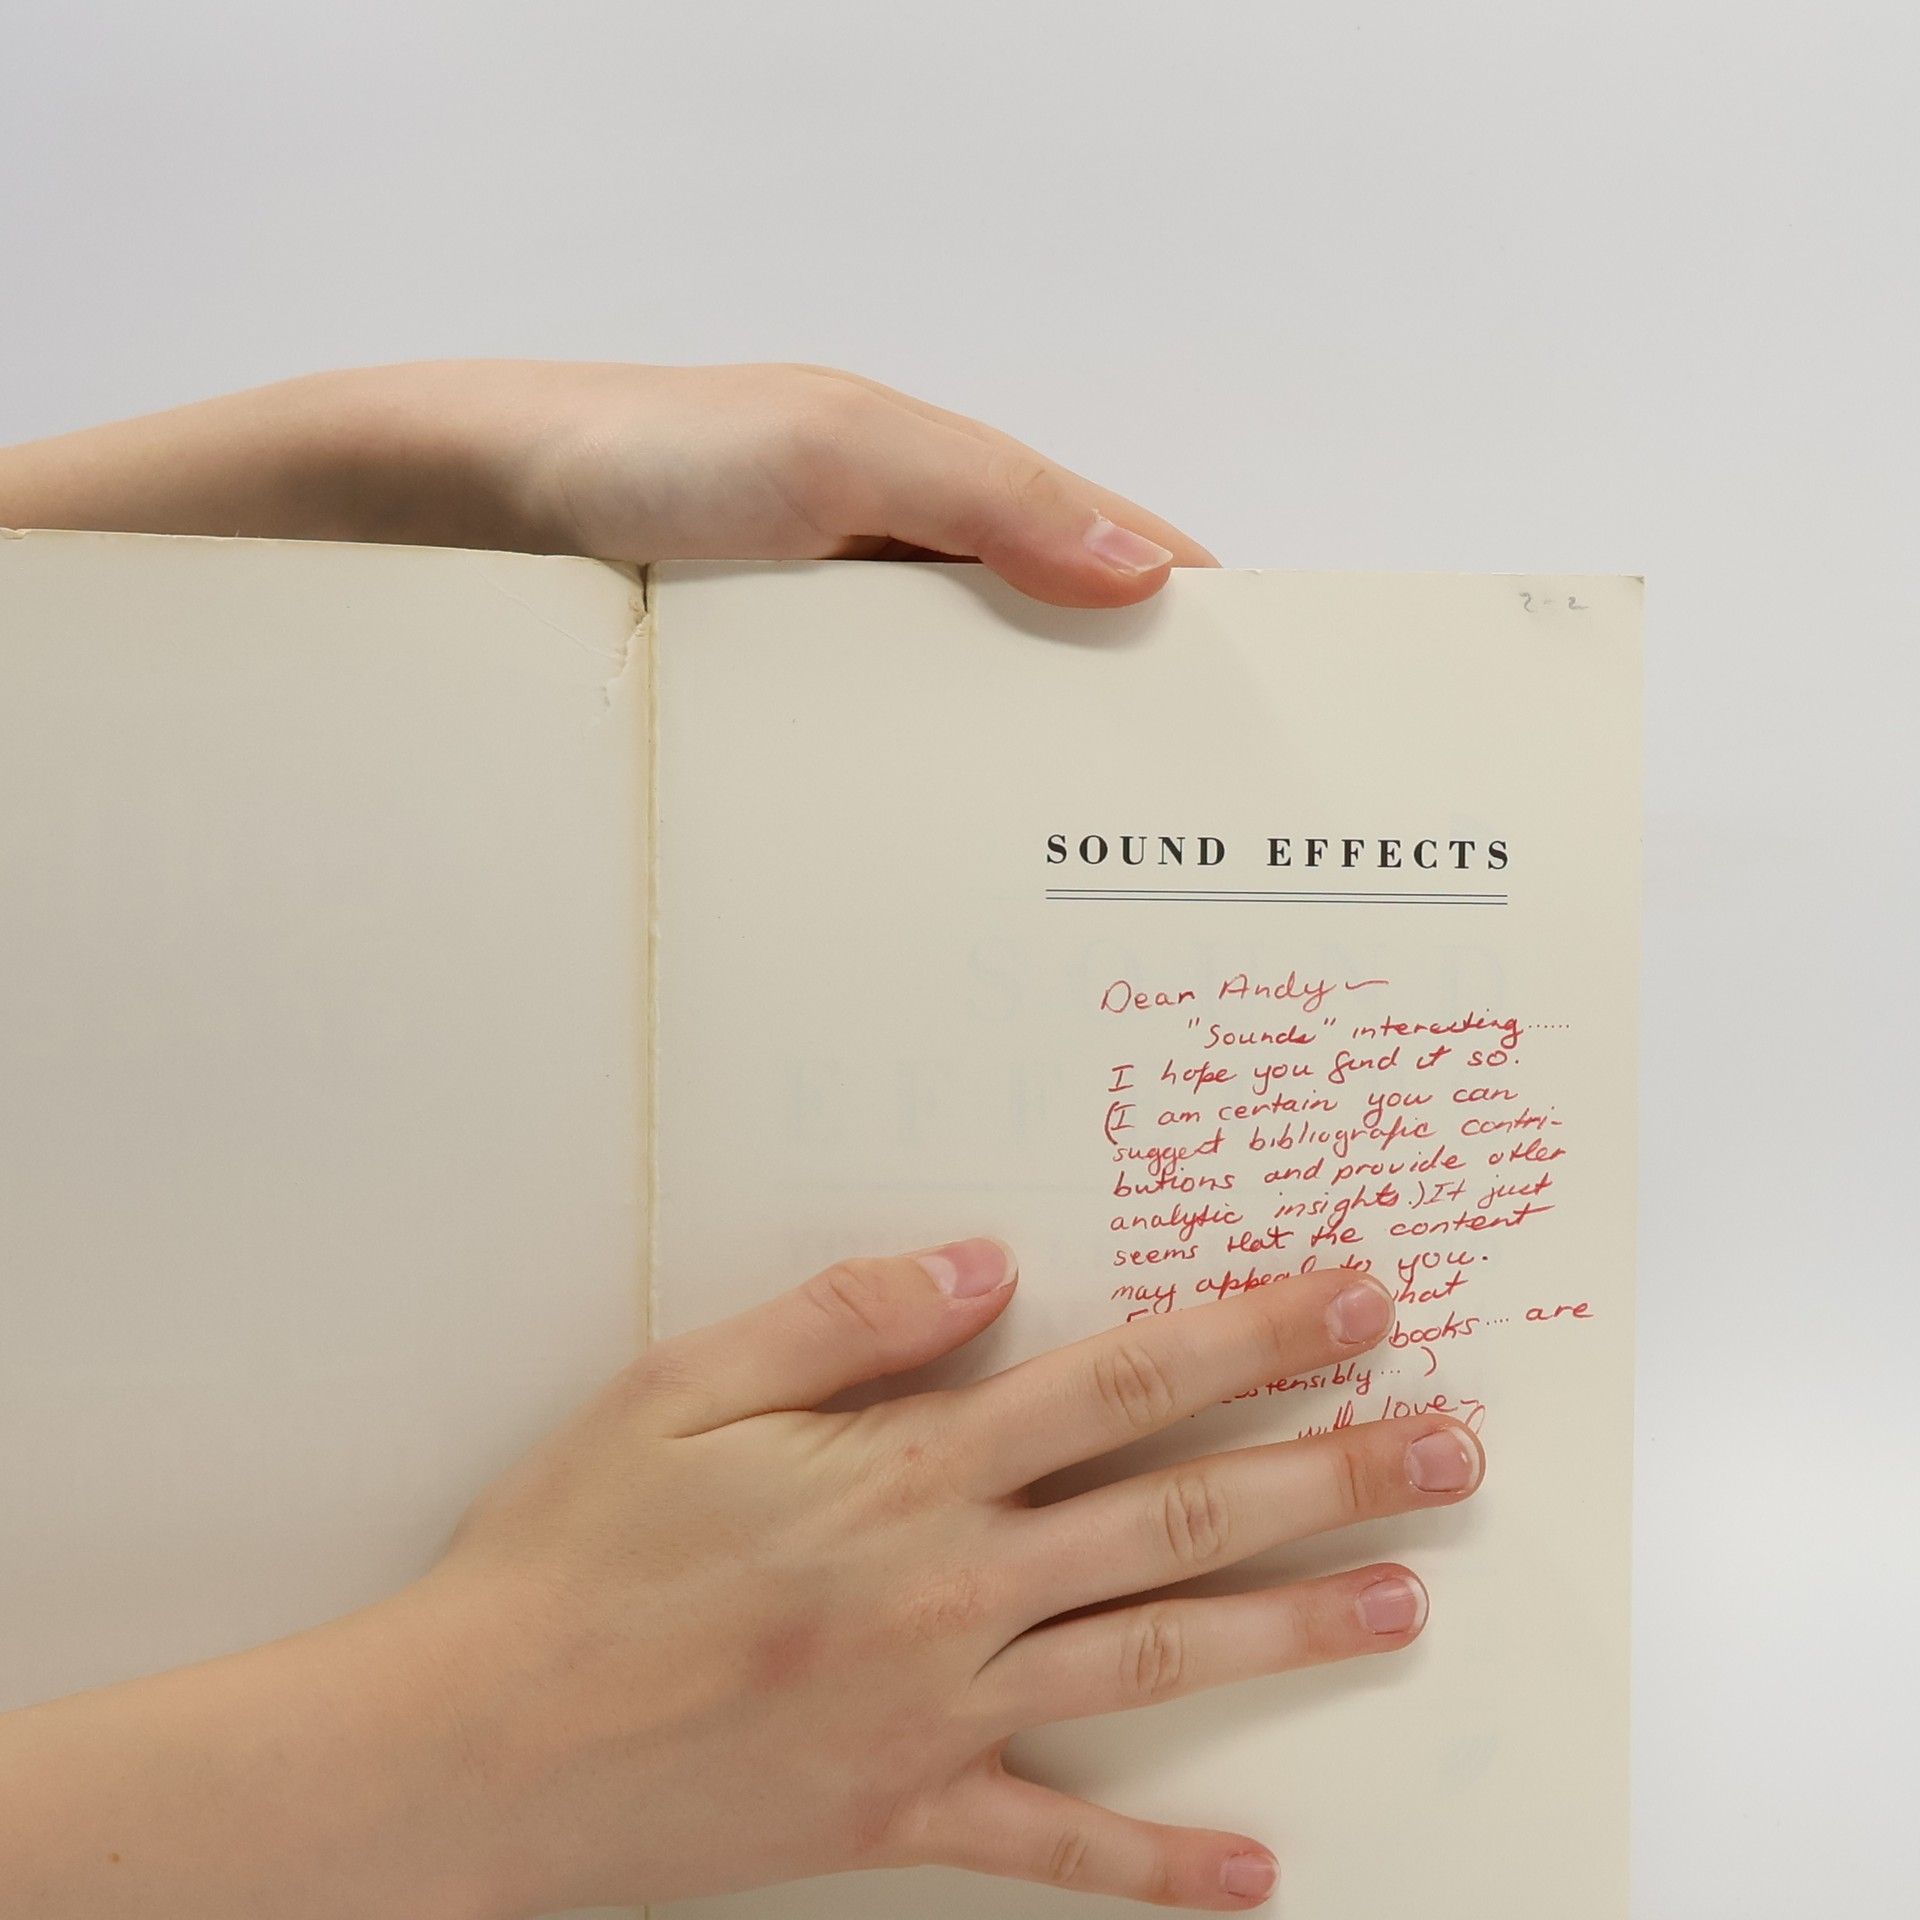 2-2
SOUND EFFECTS
Dear Andy—
"Sounds" interesting......
I hope you find it so.
(I am certain you can
suggest bibliografic contri-
butions and provide other
analytic insights.) It just
seems that the content
may appeal to you.
hat
books.... are
tensibly... )
with love—